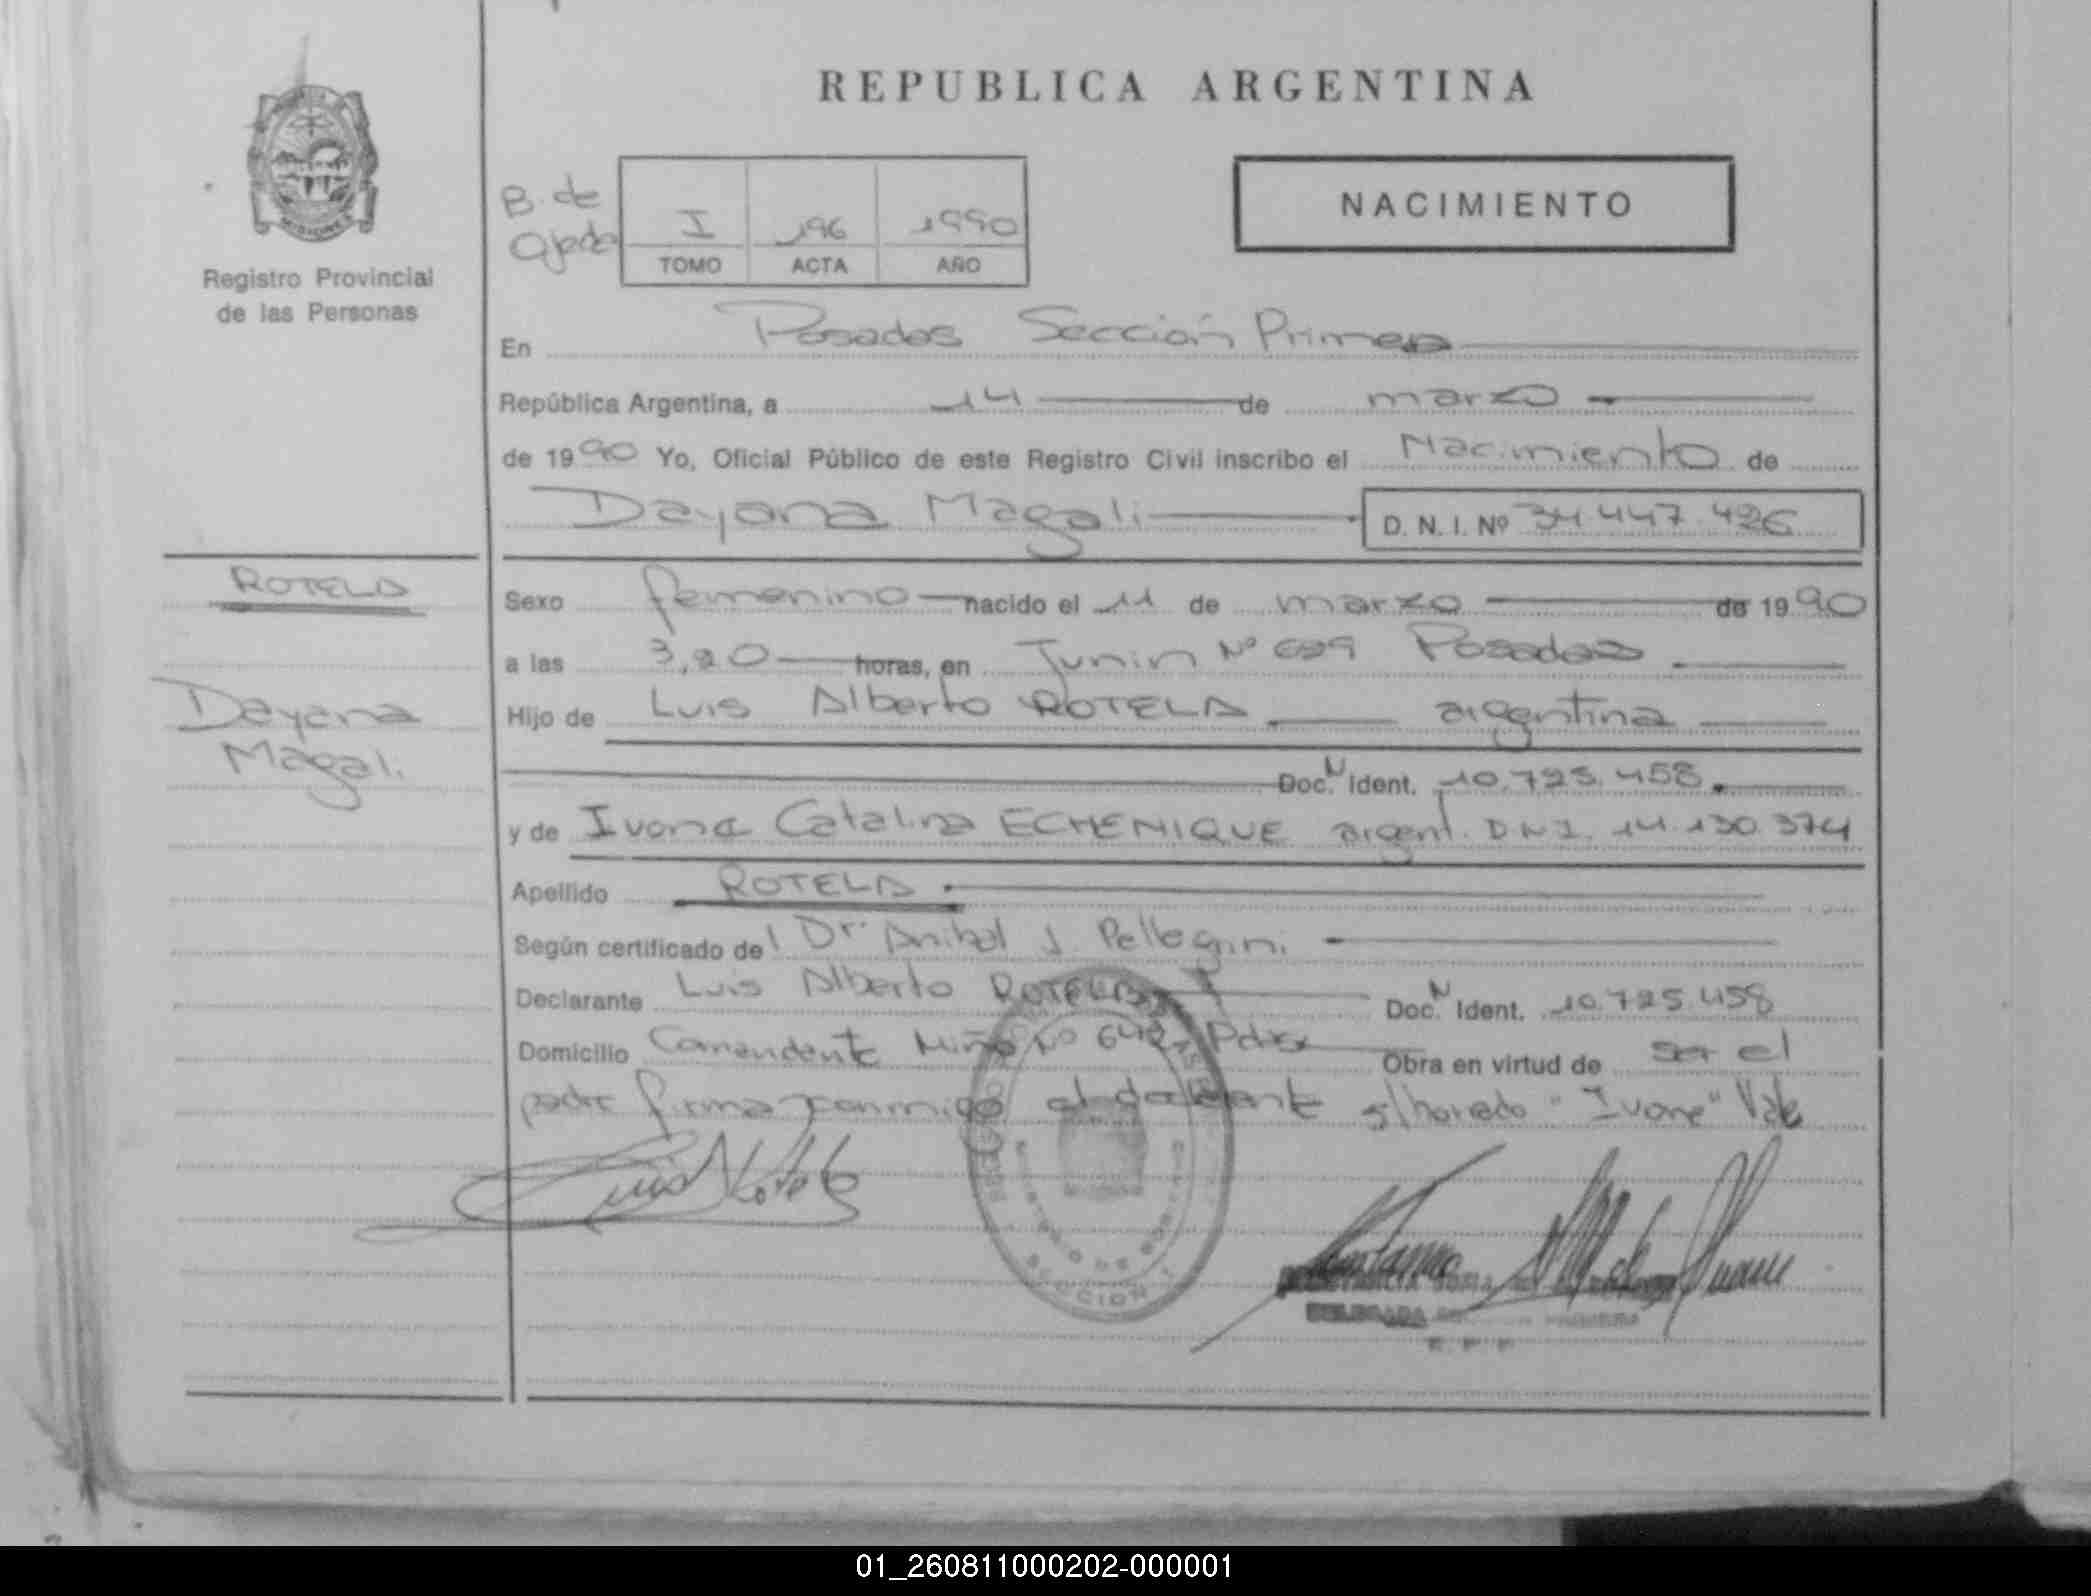 REPUBLICA ARGENTINA
MISIONES
Registro Provincial
de las Personas
B. de
Ojeda
I 196 1990
TOMO ACTA AÑO
NACIMIENTO
En Posadas Sección Primera
República Argentina, a 14 de marzo
de 1990 Yo, Oficial Público de este Registro Civil inscribo el Nacimiento de
Dayana Magali D. N. I. Nº 34.447.426
ROTELA
Dayana
Magali
Sexo femenino nacido el 11 de marzo de 1990
a las 3,20 horas, en Junin Nº Posadas
Hijo de Luis Alberto ROTELA argentina
Doc. N Ident. 10.725.458.
y de Ivone Catalina ECHENIQUE argent. DNI. 14.130.374
Apellido ROTELA.
Según certificado del Dr. Anibal J. Pellegrini
Declarante Luis Alberto ROTELA Doc. N Ident. 10.725.458
Domicilio Comandante Miño Nº 642 Pdas Obra en virtud de ser el
padre firma conmigo el declarante s/borrado "Ivone" Vale
SECCION 1
DELEGADA
01_260811000202-000001